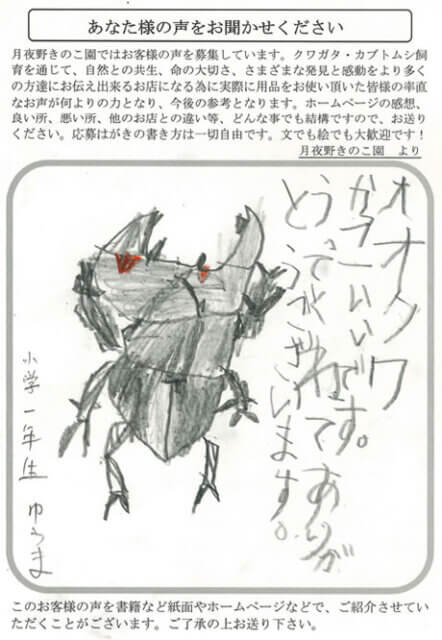 あなた様の声をお聞かせください
月夜野きのこ園ではお客様の声を募集しています。クワガタ・カブトムシ飼
育を通じて、自然との共生、命の大切さ、さまざまな発見と感動をより多く
の方達にお伝え出来るお店になる為に実際に用品をお使い頂いた皆様の率直
なお声が何よりの力となり、今後の参考となります。ホームページの感想、
良い所、悪い所、他のお店との違い等、どんな事でも結構ですので、お送り
ください。応募はがきの書き方は一切自由です。文でも絵でも大歓迎です！
月夜野きのこ園　より
オオクワ
かっこいいです。
てありが
とうございます。
小学一年生　ゆうま
このお客様の声を書籍など紙面やホームページなどで、ご紹介させていた
だくことがございます。ご了承の上お送り下さい。